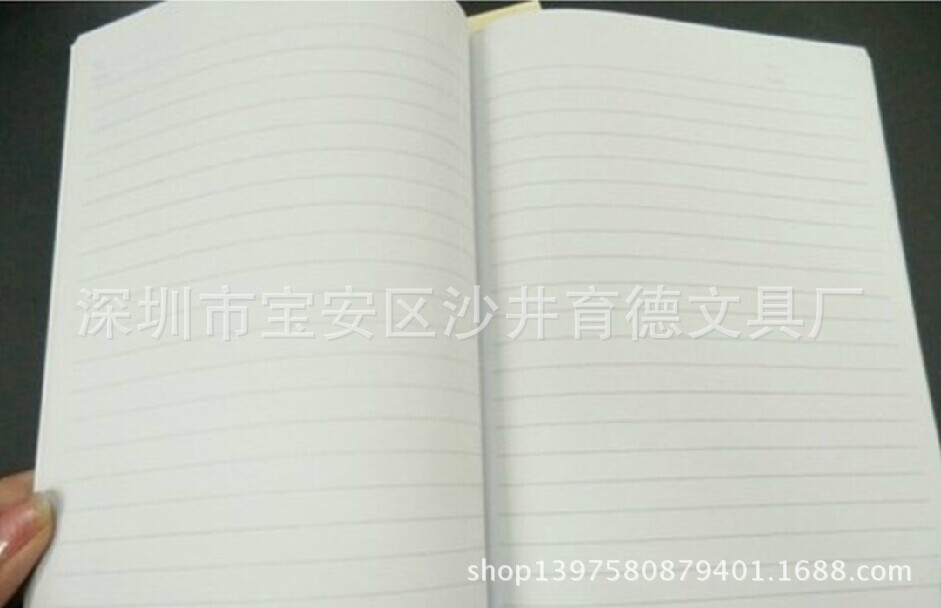 深圳市宝安区沙井育德文具厂
shop1397580879401.1688.com